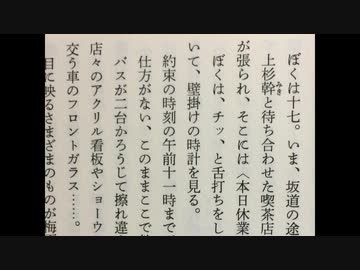 ぼくは十七。いま、坂道の途
上杉幹と待ち合わせた喫茶店
みき
が張られ、そこには〈本日休業
ぼくは、チッ、と舌打ちをし
いて、壁掛けの時計を見る。
約束の時刻の午前十一時まで
仕方がない、このままここで
バスが二台かろうじて擦れ違
店々のアクリル看板やショーウ
交う車のフロントガラス……。
目に映るさまざまのものが梅